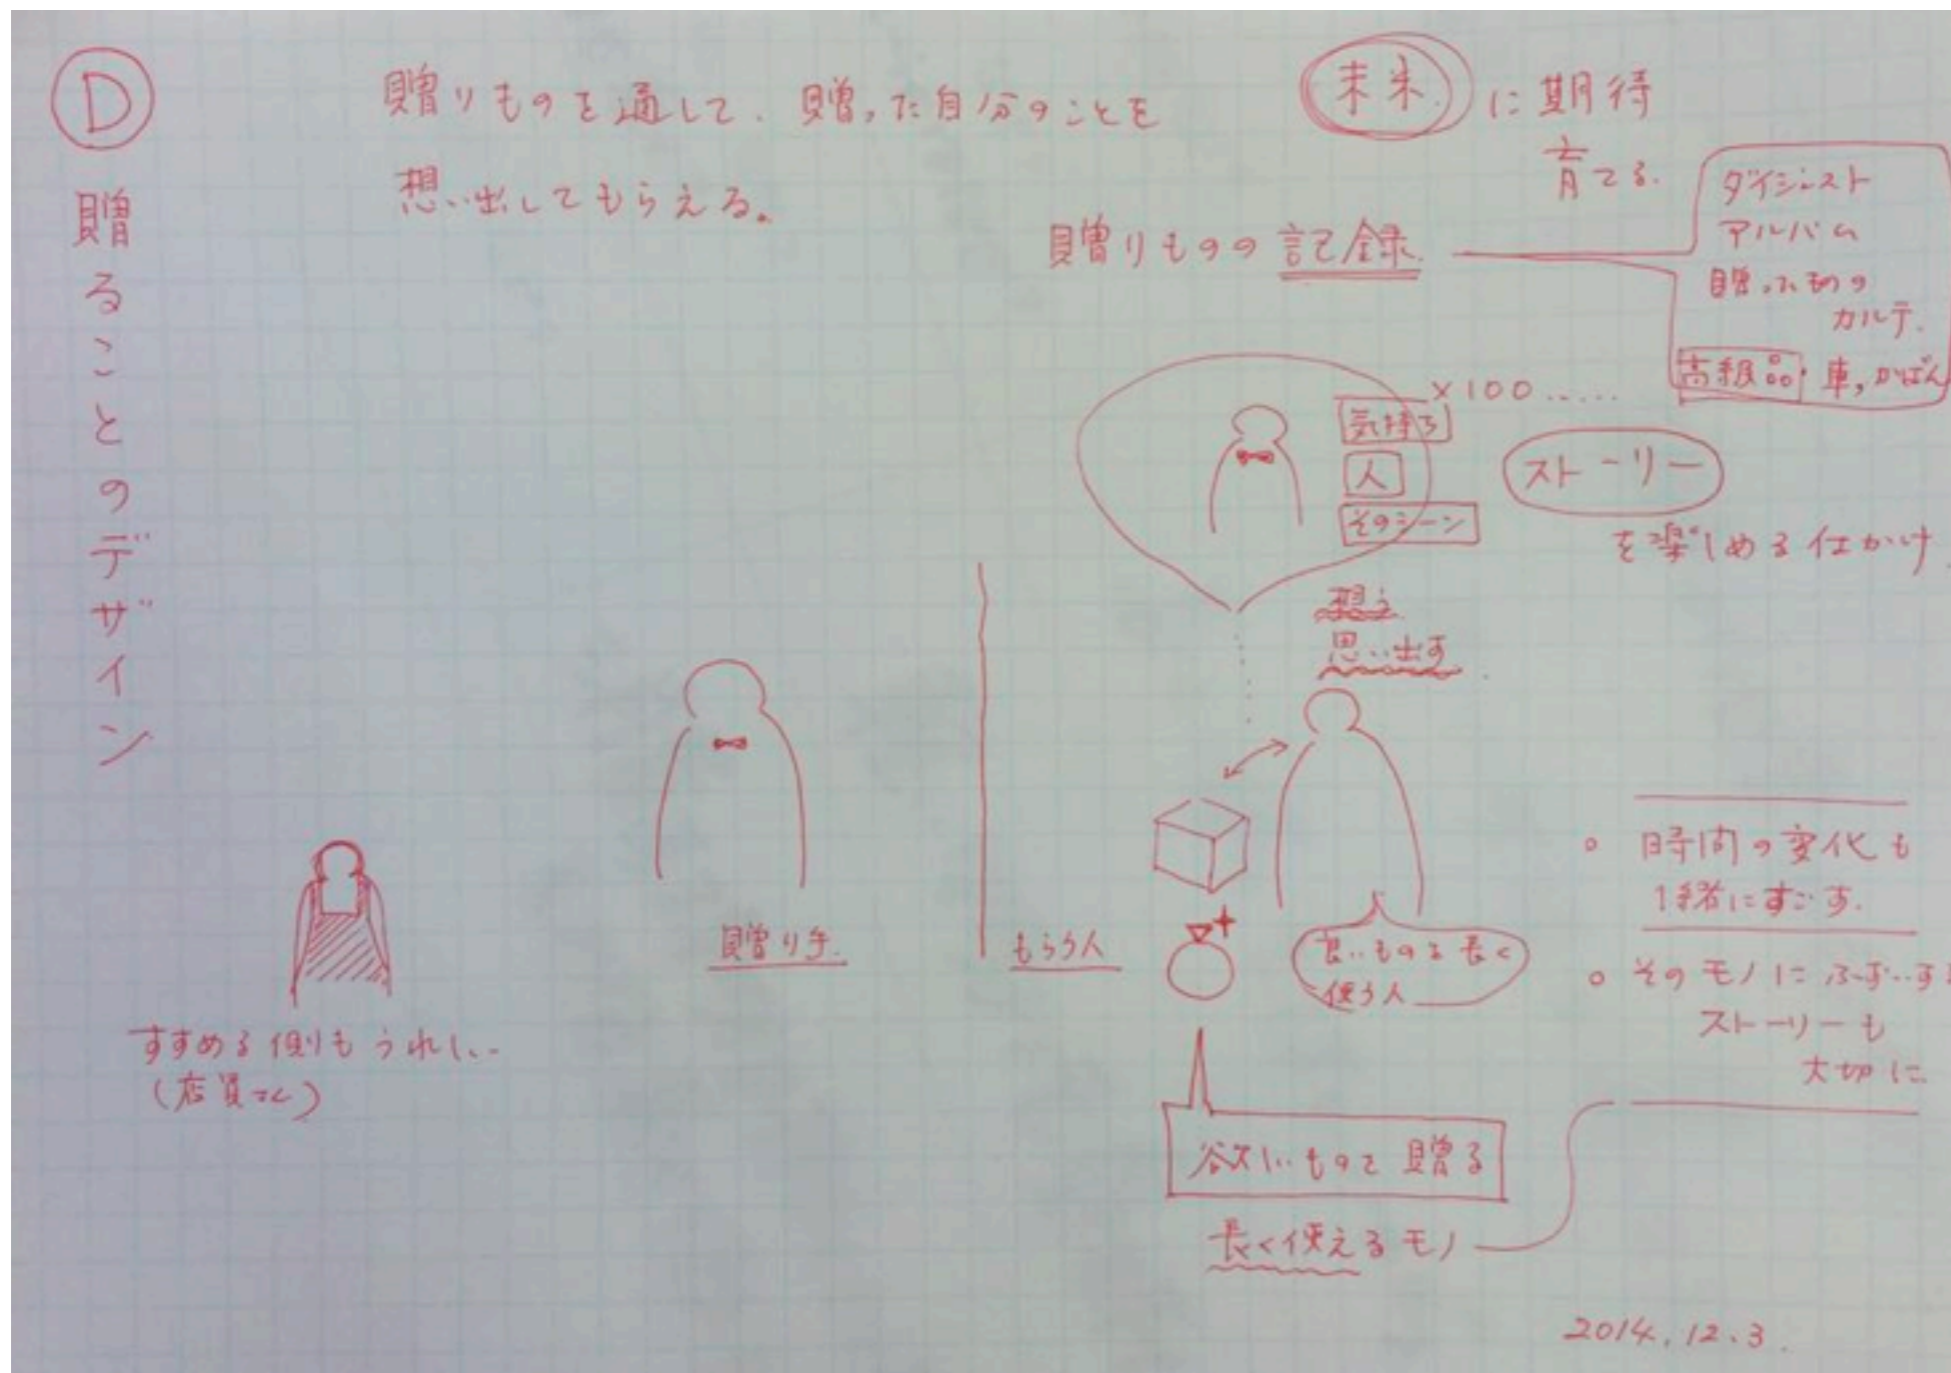 D
贈ることのデザイン
贈りものを通して、贈った自分のことを
想い出してもらえる。
未来に期待
育てる。
贈りものの記録
ダイジェスト
アルバム
贈ったもの
カルテ.
高級品・車,かばん
×100……
気持ち
人
そのシーン
ストーリー
を楽しめる仕かけ
思い出す
贈り手.
もらう人
良いものを長く
使う人
すすめる側もうれしい
(店員さん)
時間の変化も
1緒にすごす.
そのモノにふずいする
ストーリーも
大切に.
欲しいものを贈る
長く使えるモノ
2014.12.3.